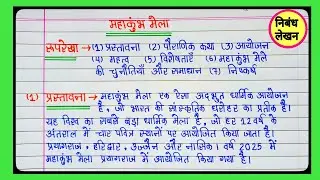 महाकुंभ मेला
निबंध
लेखन
रूपरेखा → (1) प्रस्तावना (2) पौराणिक कथा (3) आयोजन
(4) महत्व (5) विशेषताएँ (6) महाकुंभ मेले
की चुनौतियाँ और समाधान (7) निष्कर्ष
(1) प्रस्तावना → महाकुंभ मेला एक ऐसा अद्भुत धार्मिक आयोजन
है, जो भारत की सांस्कृतिक धरोहर का प्रतीक है।
यह विश्व का सबसे बड़ा धार्मिक मेला है, जो हर 12 वर्ष के
अंतराल में चार पवित्र स्थानों पर आयोजित किया जाता है।
प्रयागराज, हरिद्वार, उज्जैन और नासिक। वर्ष 2025 में
महाकुंभ मेला प्रयागराज में आयोजित किया गया है।